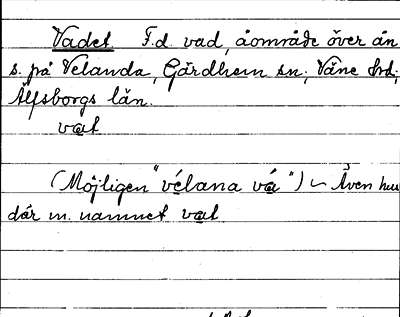 Vadet F.d. vad, åområde över ån
s. på Velanda, Gärdhem sn, Väne hd,
Älfsborgs län.
vat
(Möjligen "vélana vá") ∽ Även hus
där m. namnet vat